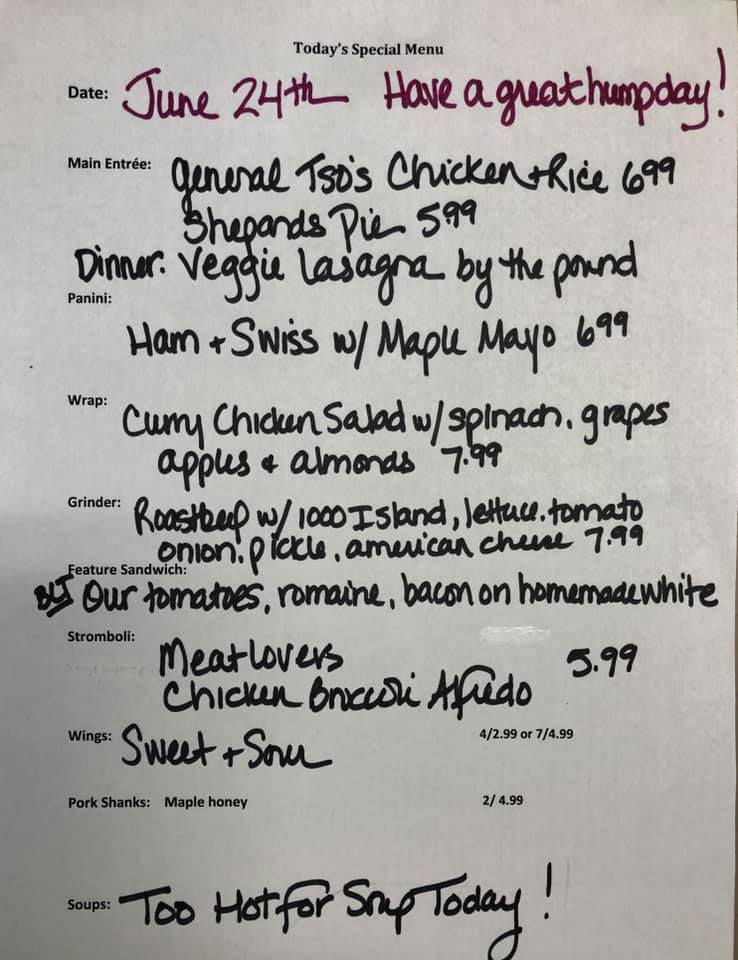 Today's Special Menu
Date: June 24th Have a great humpday!
Main Entrée: General Tso's Chicken + Rice 6.99
Shepards Pie 5.99
Dinner. Veggie Lasagna by the pound
Panini:
Ham + Swiss w/ Maple Mayo 6.99
Wrap: Curry Chicken Salad w/ spinach, grapes
apples + almonds 7.99
Grinder: Roastbeef w/ 1000 Island, lettuce, tomato
onion, pickle, american cheese 7.99
Feature Sandwich:
BLT Our tomatoes, romaine, bacon on homemade white
Stromboli: Meatlovers 5.99
Chicken Broccoli Alfredo
Wings: Sweet + Sour 4/2.99 or 7/4.99
Pork Shanks: Maple honey 2/ 4.99
Soups: Too Hot for Soup Today!